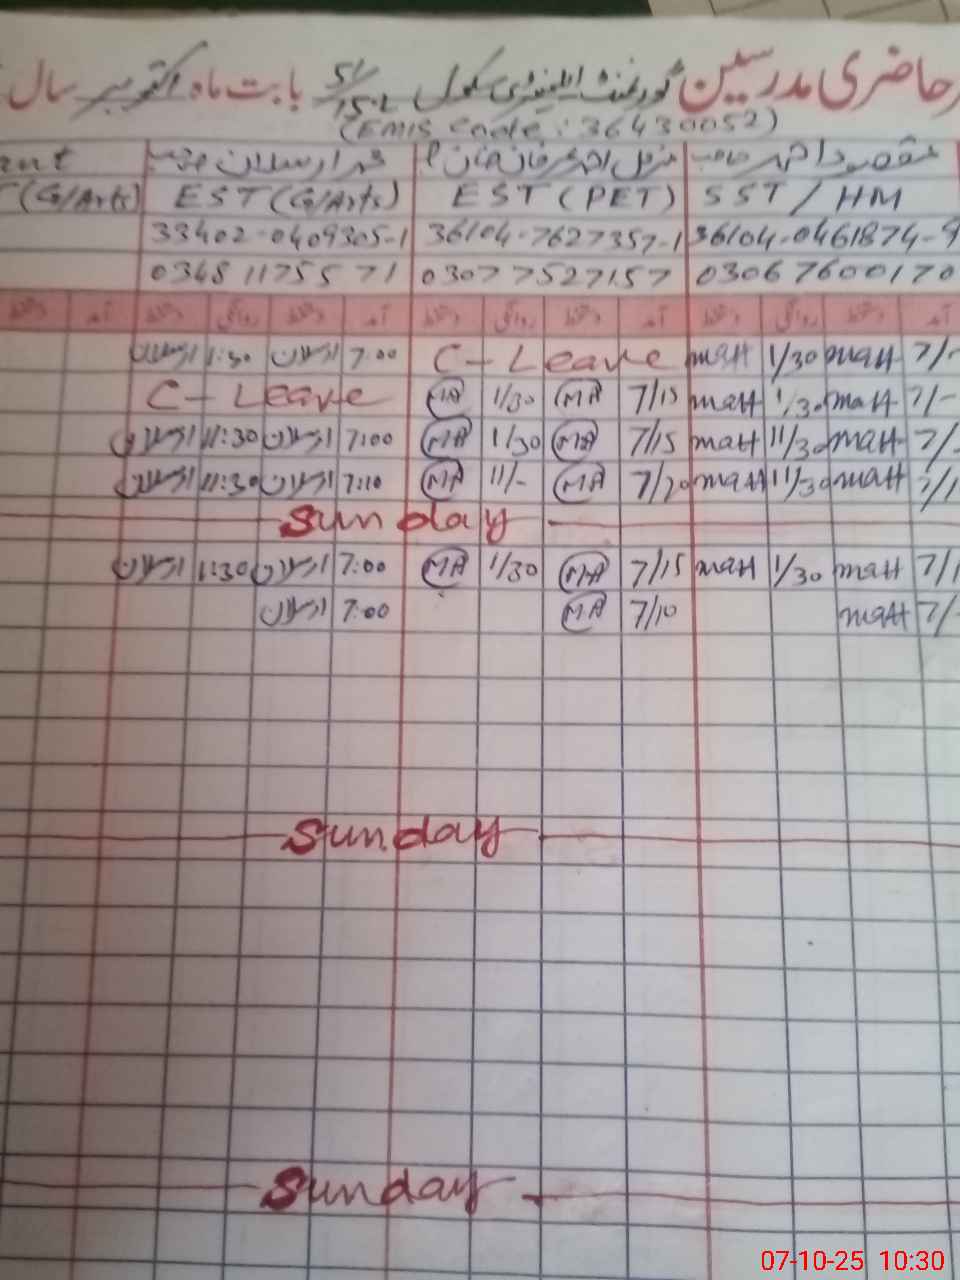 حاضری مدرسین گورنمنٹ ایلیمنٹری سکول 51/15-L بابت ماہ اکتوبر سال
(EMIS Code: 36430052)
مقصود احمد صاحب
SST / HM EST (PET) EST (G/Arts) (G/Arts)
36104-0461874-9 36104-7627357-1 33402-0409305-1
03067600170 03077527157 03481175571
آمد دستخط روانگی دستخط آمد دستخط روانگی دستخط آمد دستخط روانگی دستخط آمد
7/- matt 1/30 matt C-Leave 7:00 ارسلان 1:30 ارسلان
7/- matt 1/30 matt 7/15 MA 1/30 MA C-Leave
7/- matt 11/30 matt 7/15 MA 1/30 MA 7:00 ارسلان 11:30 ارسلان
7/1 matt 11/30 matt 7/20 MA 11/- MA 7:10 ارسلان 11:30 ارسلان
Sunday
7/1 matt 1/30 matt 7/15 MA 1/30 MA 7:00 ارسلان 1:30 ارسلان
7/- matt 7/10 MA 7:00 ارسلان
Sunday
Sunday
07-10-25 10:30